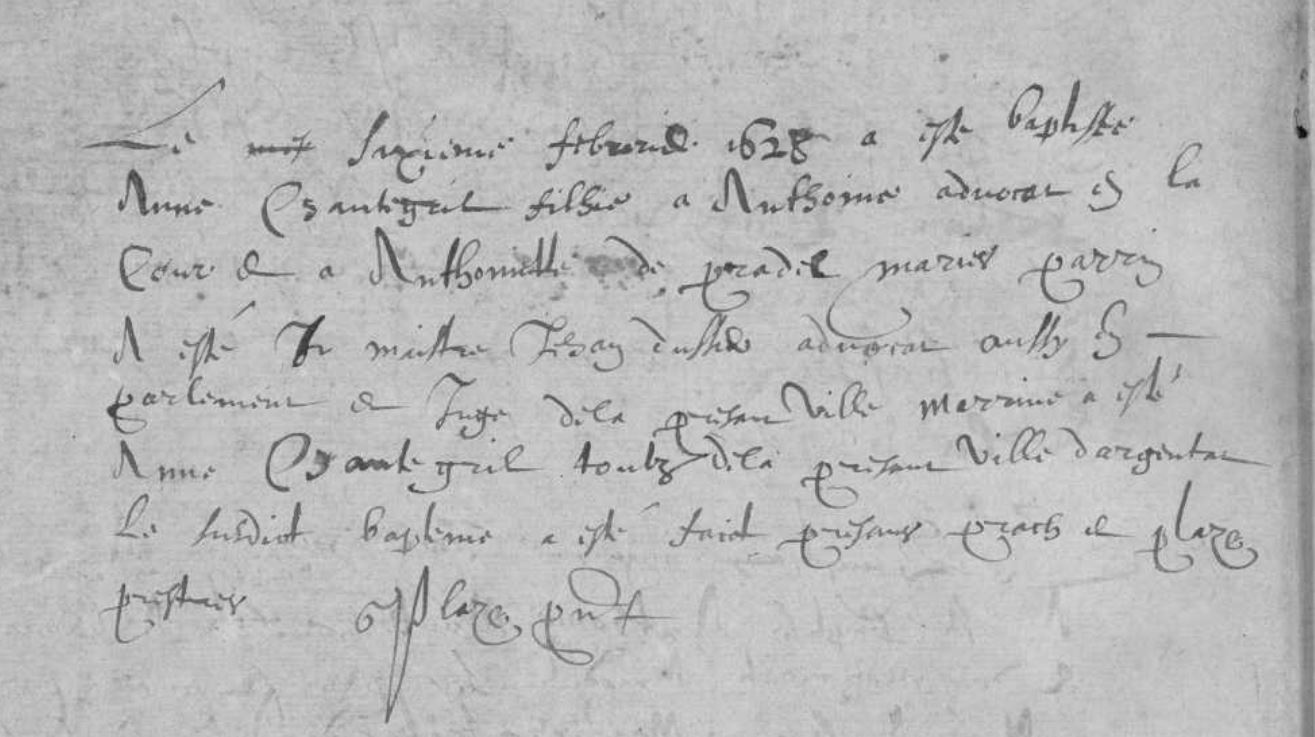 Le sixieme febvrier 1628 a este baptisée
Anne Chantegril fillie a Anthoine advocat en la
Cour et a Anthoinette de pradel maries parrin
A esté Mr maistre Jehan dussol advocat aussy en
parlement et Juge dela presant ville marrine a esté
Anne Chantegril toutz dela presant ville dargentat
Le susdict bapteme a este faict presans et plaze
prestres Plaze pnt